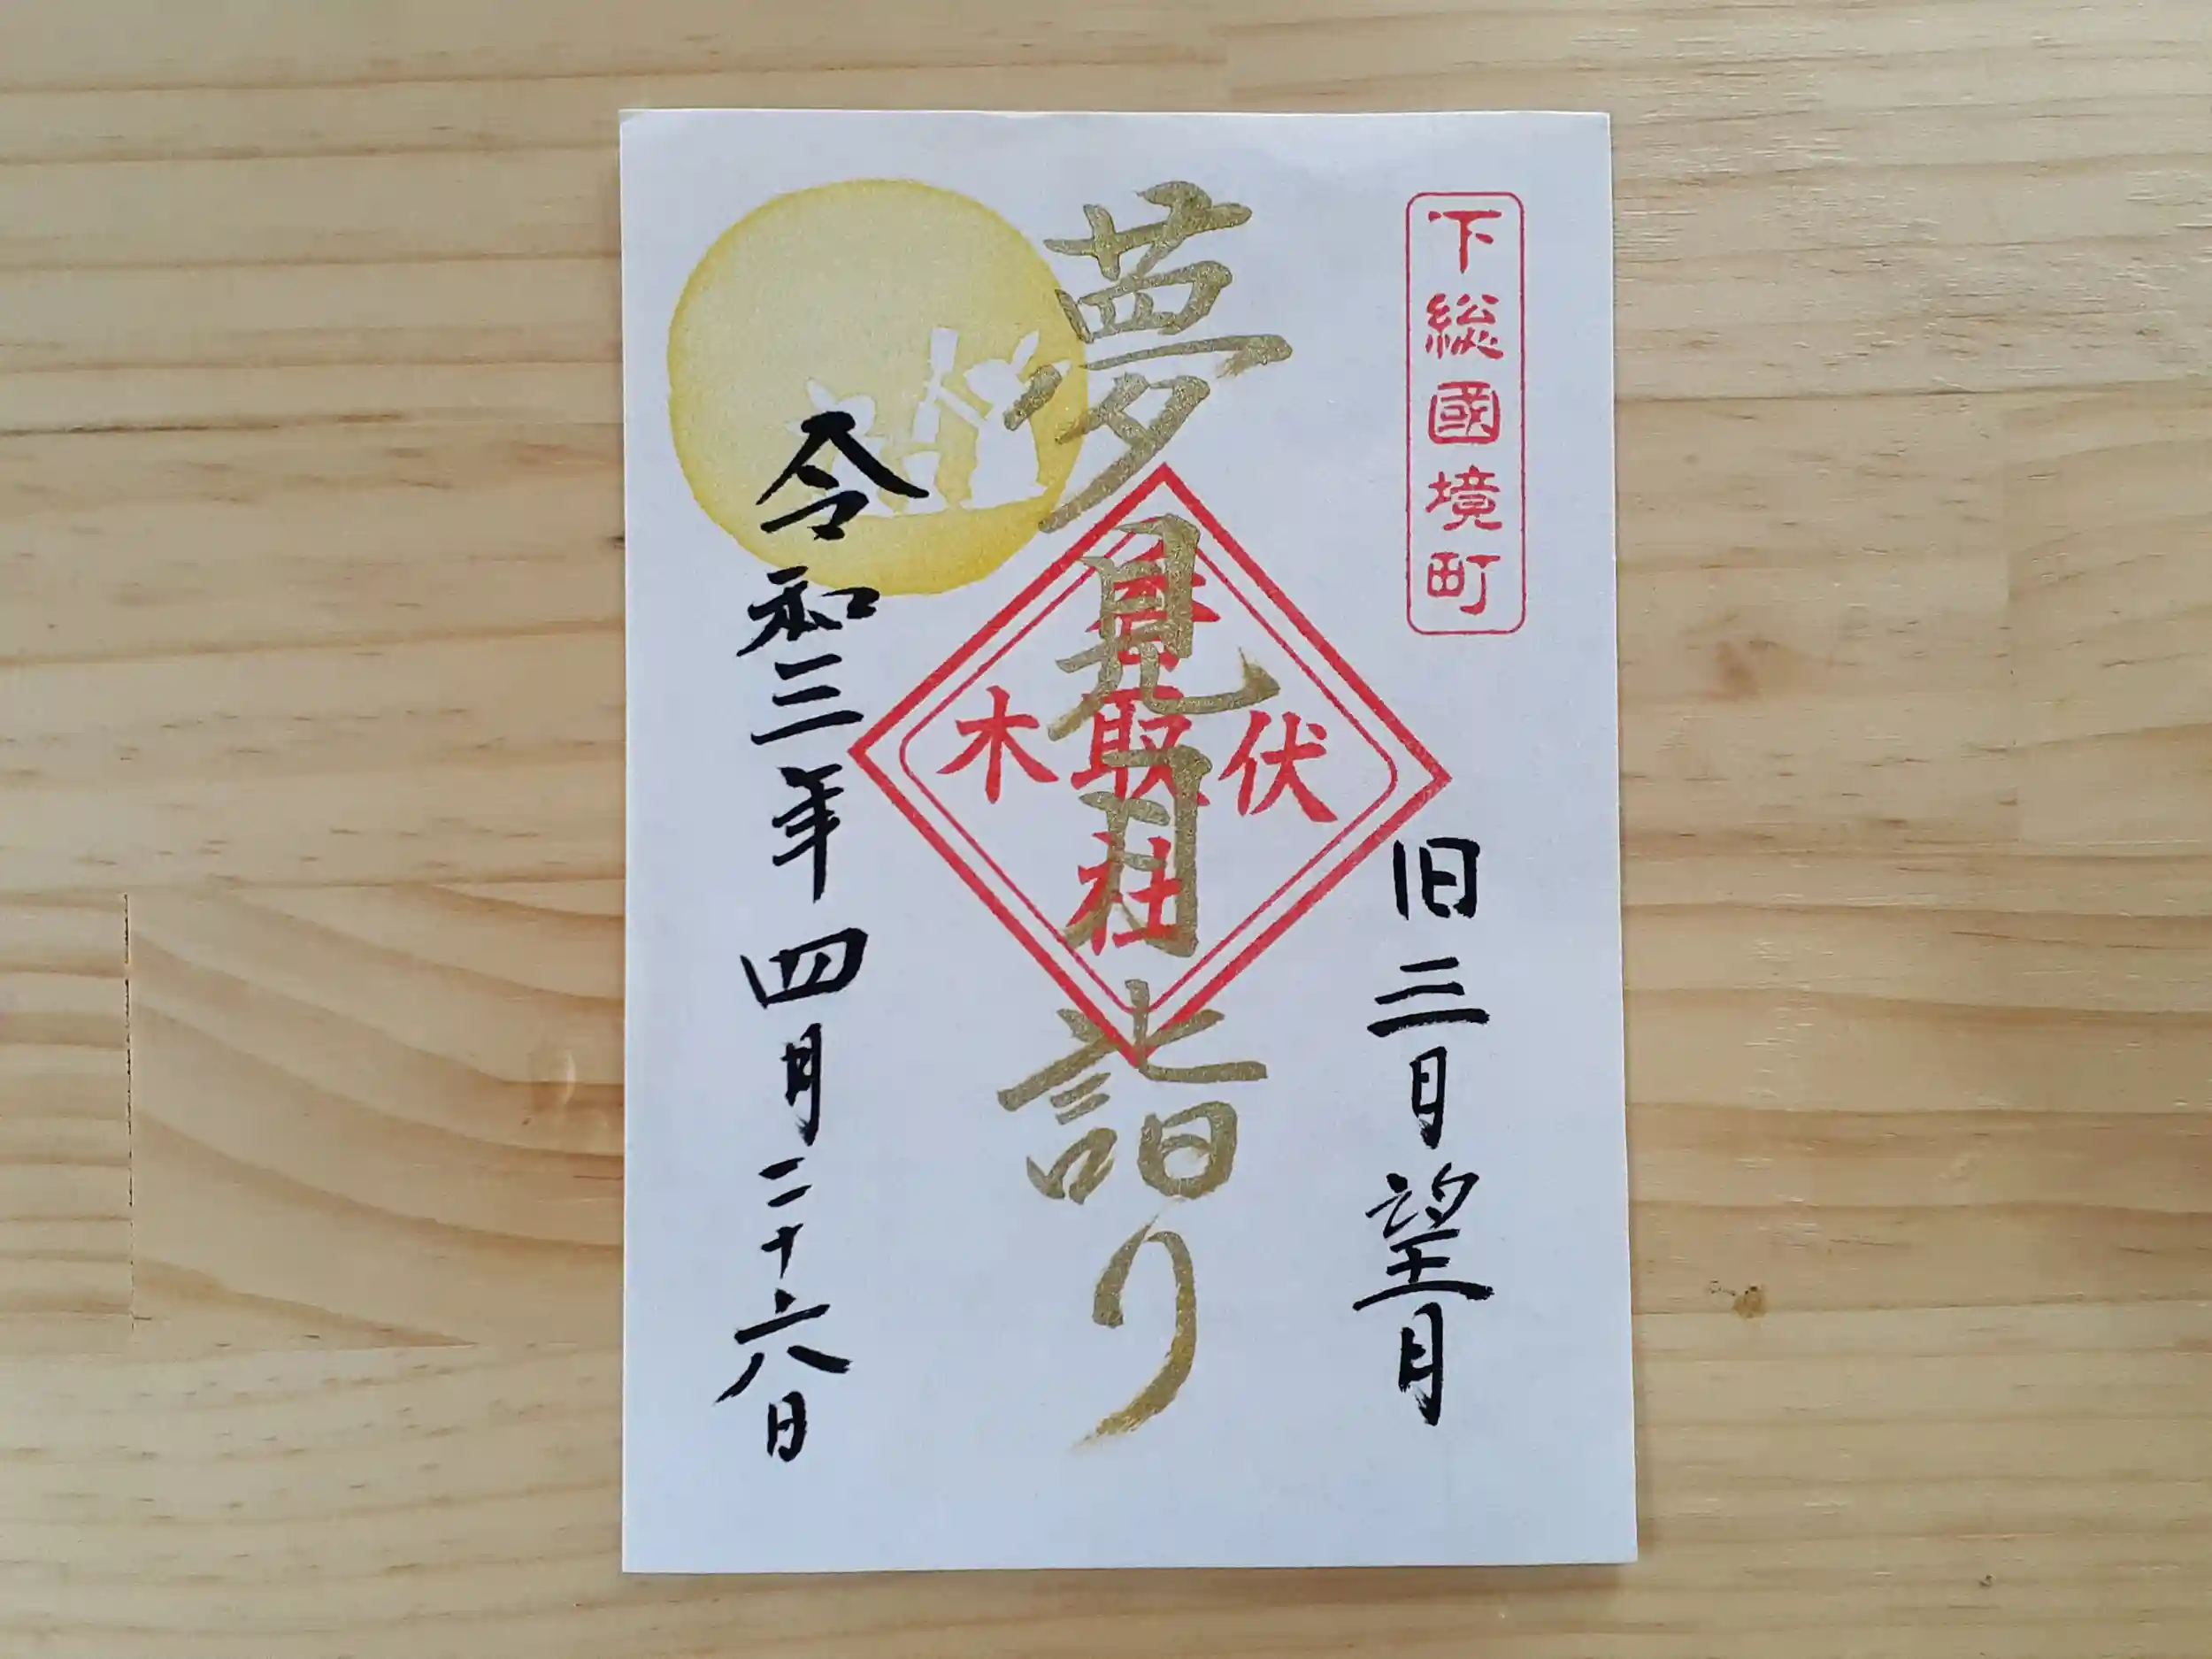 下総國境町
旧三月望月
夢見月詣り
伏木
香取社
令和三年四月二十六日